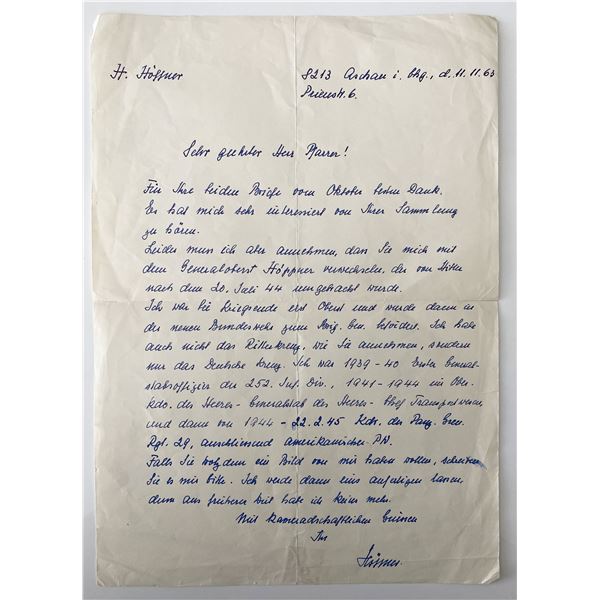 H. Höffner
8213 Aschau i. Chg., d. 11.11.63
Prienstr. 6.
Sehr geehrter Herr Pfarrer!
Für Ihre beiden Briefe vom Oktober besten Dank.
Es hat mich sehr interessiert von Ihrer Sammlung
zu hören.
Leider muss ich aber annehmen, dass Sie mich mit
dem Generaloberst Höppner verwechseln, der von Hitler
nach dem 20. Juli 44 umgebracht wurde.
Ich war bei Kriegsende erst Oberst und wurde dann in
der neuen Bundeswehr zum Brig. Gen. befördert. Ich habe
auch nicht das Ritterkreuz, wie Sie annehmen, sondern
nur das Deutsche Kreuz. Ich war 1939-40 Erster General-
stabsoffizier der 252. Inf. Div., 1941-1944 im Ober-
kdo. des Heeres-Generalstab des Heeres-Chef Transportwesen,
und dann von 1944 - 22.2.45 Kdr. des Panz. Gren.
Rgt. 29, anschliessend amerikanischer PW.
Falls Sie trotzdem ein Bild von mir haben wollen, schreiben
Sie es mir bitte. Ich werde dann eins anfertigen lassen,
denn aus früherer Zeit habe ich keine mehr.
Mit kameradschaftlichen Grüssen
Ihr
Höffner.